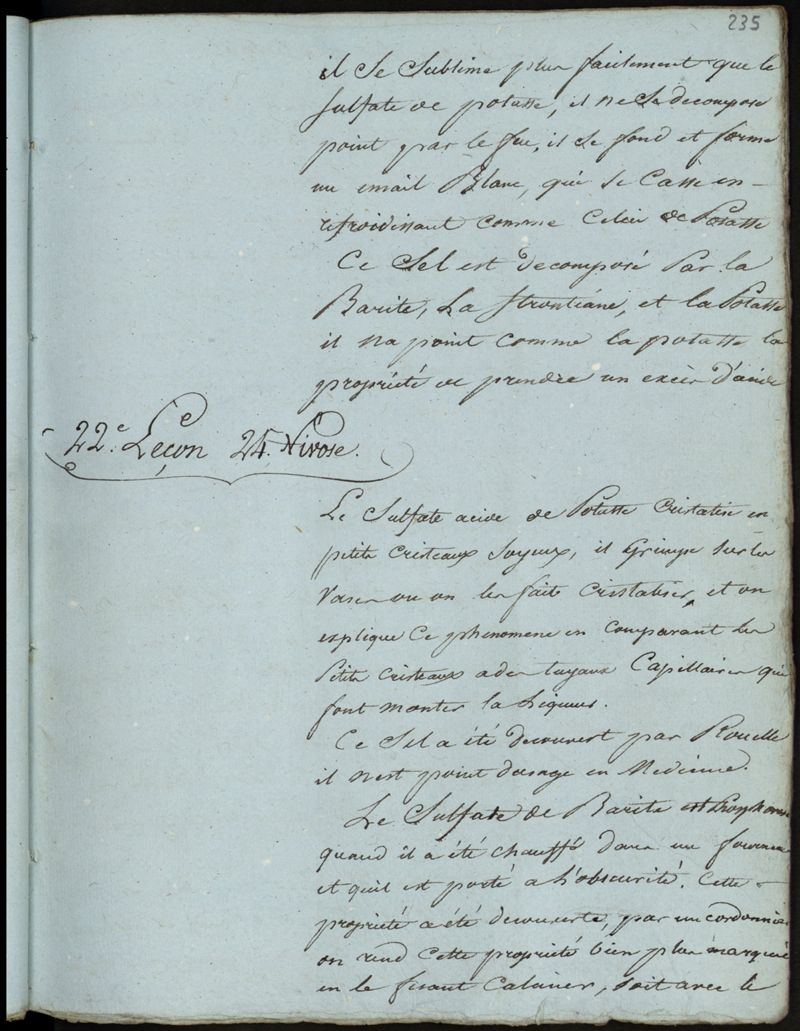 235
il se sublime plus facilement que le
sulfate de potasse, il ne se decompose
point par le feu, il se fond et forme
un email Blanc, qui se Casse en
refroidissant comme Celui de Potasse
Ce Sel est decomposé Par la
Barite, La strontiane, et la Potasse
il na point comme la potasse la
propriété de prendre un exces D'acide
22e. Leçon 24. Nivose.
Le Sulfate acide de Potasse Cristalise en
petits Cristeaux Soyeux, il Grimpe sur les
Vases ou on les fait Cristaliser, et on
explique Ce phenomene en Comparant les
Petits Cristeaux a des tuyaux Capillaires qui
font monter la Liqueur.
Ce Sel a été decouvert par Rouelle
il nest point dusage en Medecine.
Le Sulfate de Barite est Phosphore
quand il a été chauffé dans un fourneau
et quil est porté a L'obscurité. Cette
propriété a été decouverte, par un cordonnier
on rend Cette propriété bien plus marquée
en le fesant Calciner, soit avec le